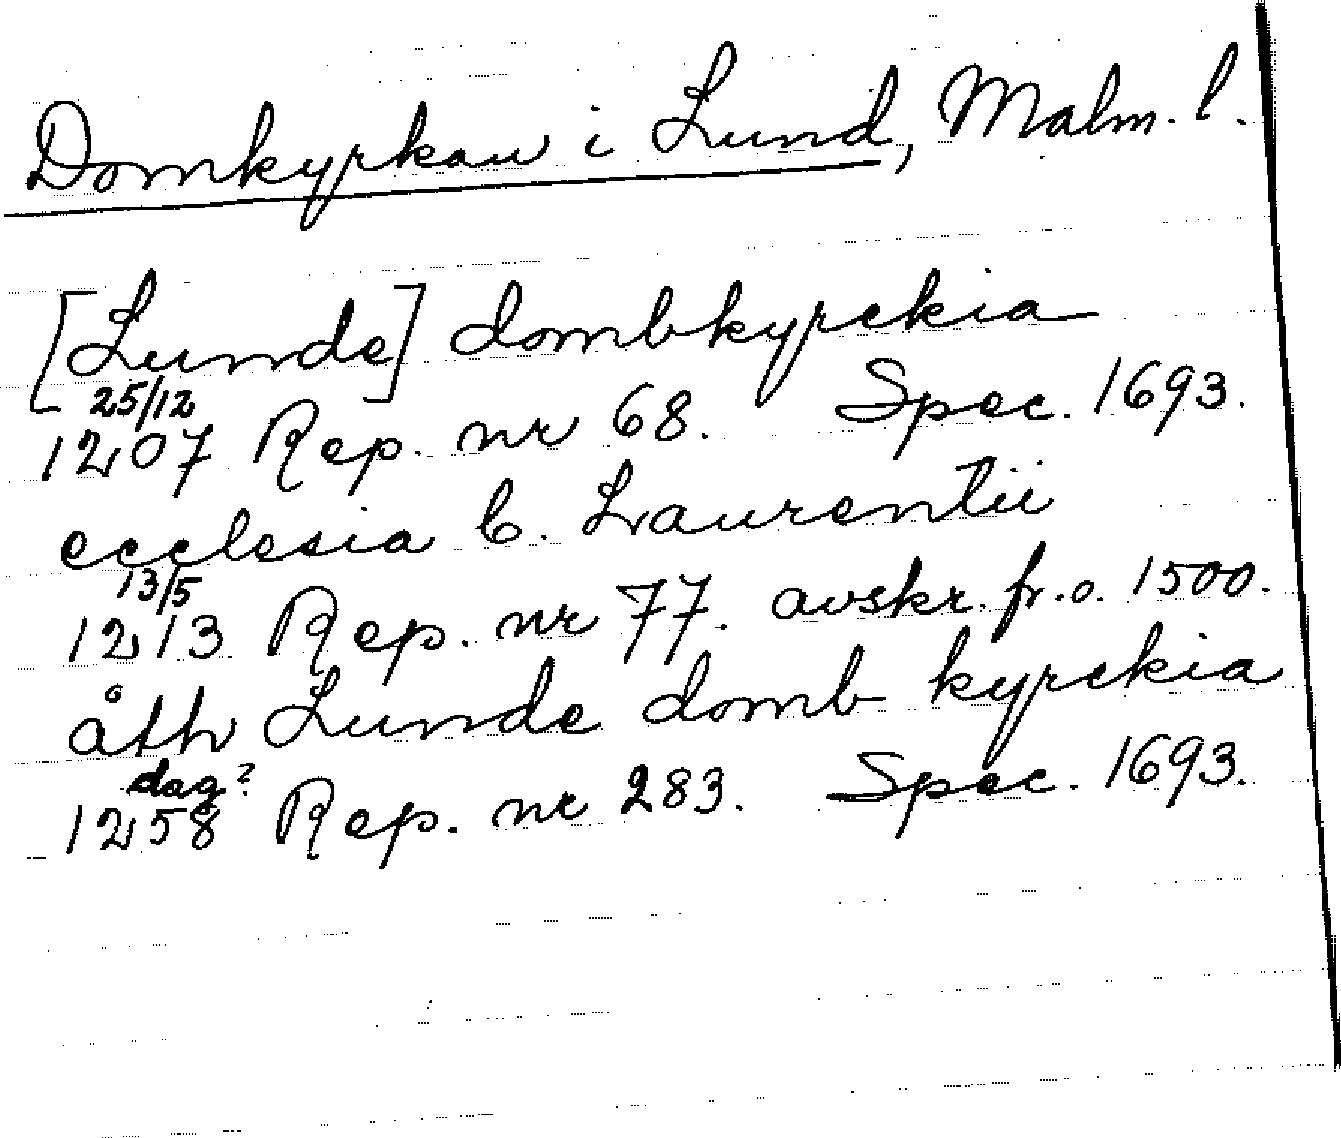 Domkyrkan i Lund, Malm. l.
[Lunde] dombkyrckia
25/12
1207 Rep. nr 68. Spec. 1693.
ecclesia b. Laurentii
13/5
1213 Rep. nr 77. avskr. fr. o. 1500.
åth Lunde domb kyrckia
dag?
1258 Rep. nr 283. Spec. 1693.